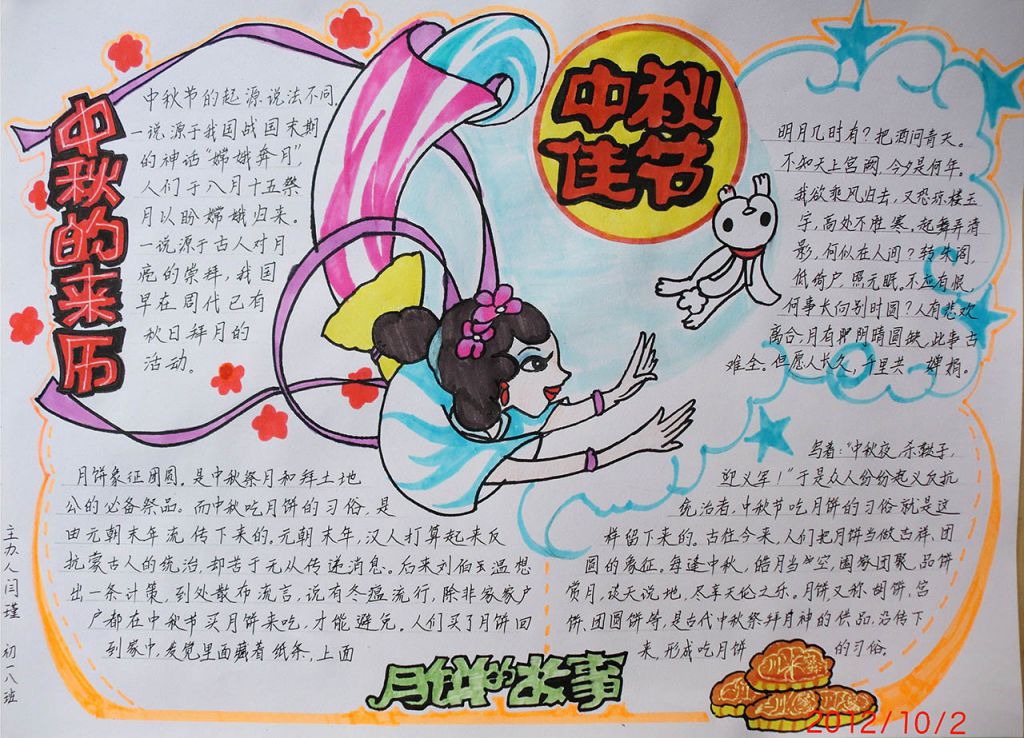 中秋佳节
中秋的来历
中秋节的起源说法不同,
一说源于我国战国末期
的神话“嫦娥奔月”,
人们于八月十五祭
月以盼嫦娥归来。
一说源于古人对月
亮的崇拜,我国
早在周代已有
秋日拜月的
活动。
明月几时有?把酒问青天。
不知天上宫阙,今夕是何年。
我欲乘风归去,又恐琼楼玉
宇,高处不胜寒,起舞弄清
影,何似在人间?转朱阁,
低倚户,照无眠。不应有恨,
何事长向别时圆?人有悲欢
离合,月有阴晴圆缺,此事古
难全。但愿人长久,千里共婵娟。
月饼象征团圆,是中秋祭月和拜土地
公的必备祭品。而中秋吃月饼的习俗,是
由元朝末年流传下来的。元朝末年,汉人打算起来反
抗蒙古人的统治,却苦于无从传递消息。后来刘伯温想
出一条计策,到处散布流言,说有冬瘟流行,除非家家户
户都在中秋节买月饼来吃,才能避免。人们买了月饼回
到家中,发觉里面藏着纸条,上面
写着:“中秋夜,杀鞑子,
迎义军!”于是众人纷纷起义反抗
统治者,中秋节吃月饼的习俗就是这
样留下来的。古往今来,人们把月饼当做吉祥、团
圆的象征。每逢中秋,皓月当空,阖家团聚,品饼
赏月,谈天说地,尽享天伦之乐。月饼又称胡饼、宫
饼、团圆饼等,是古代中秋祭拜月神的供品,沿传下
来,形成吃月饼的习俗。
月饼的故事
主办人闫瑾 初一八班
2012/10/2